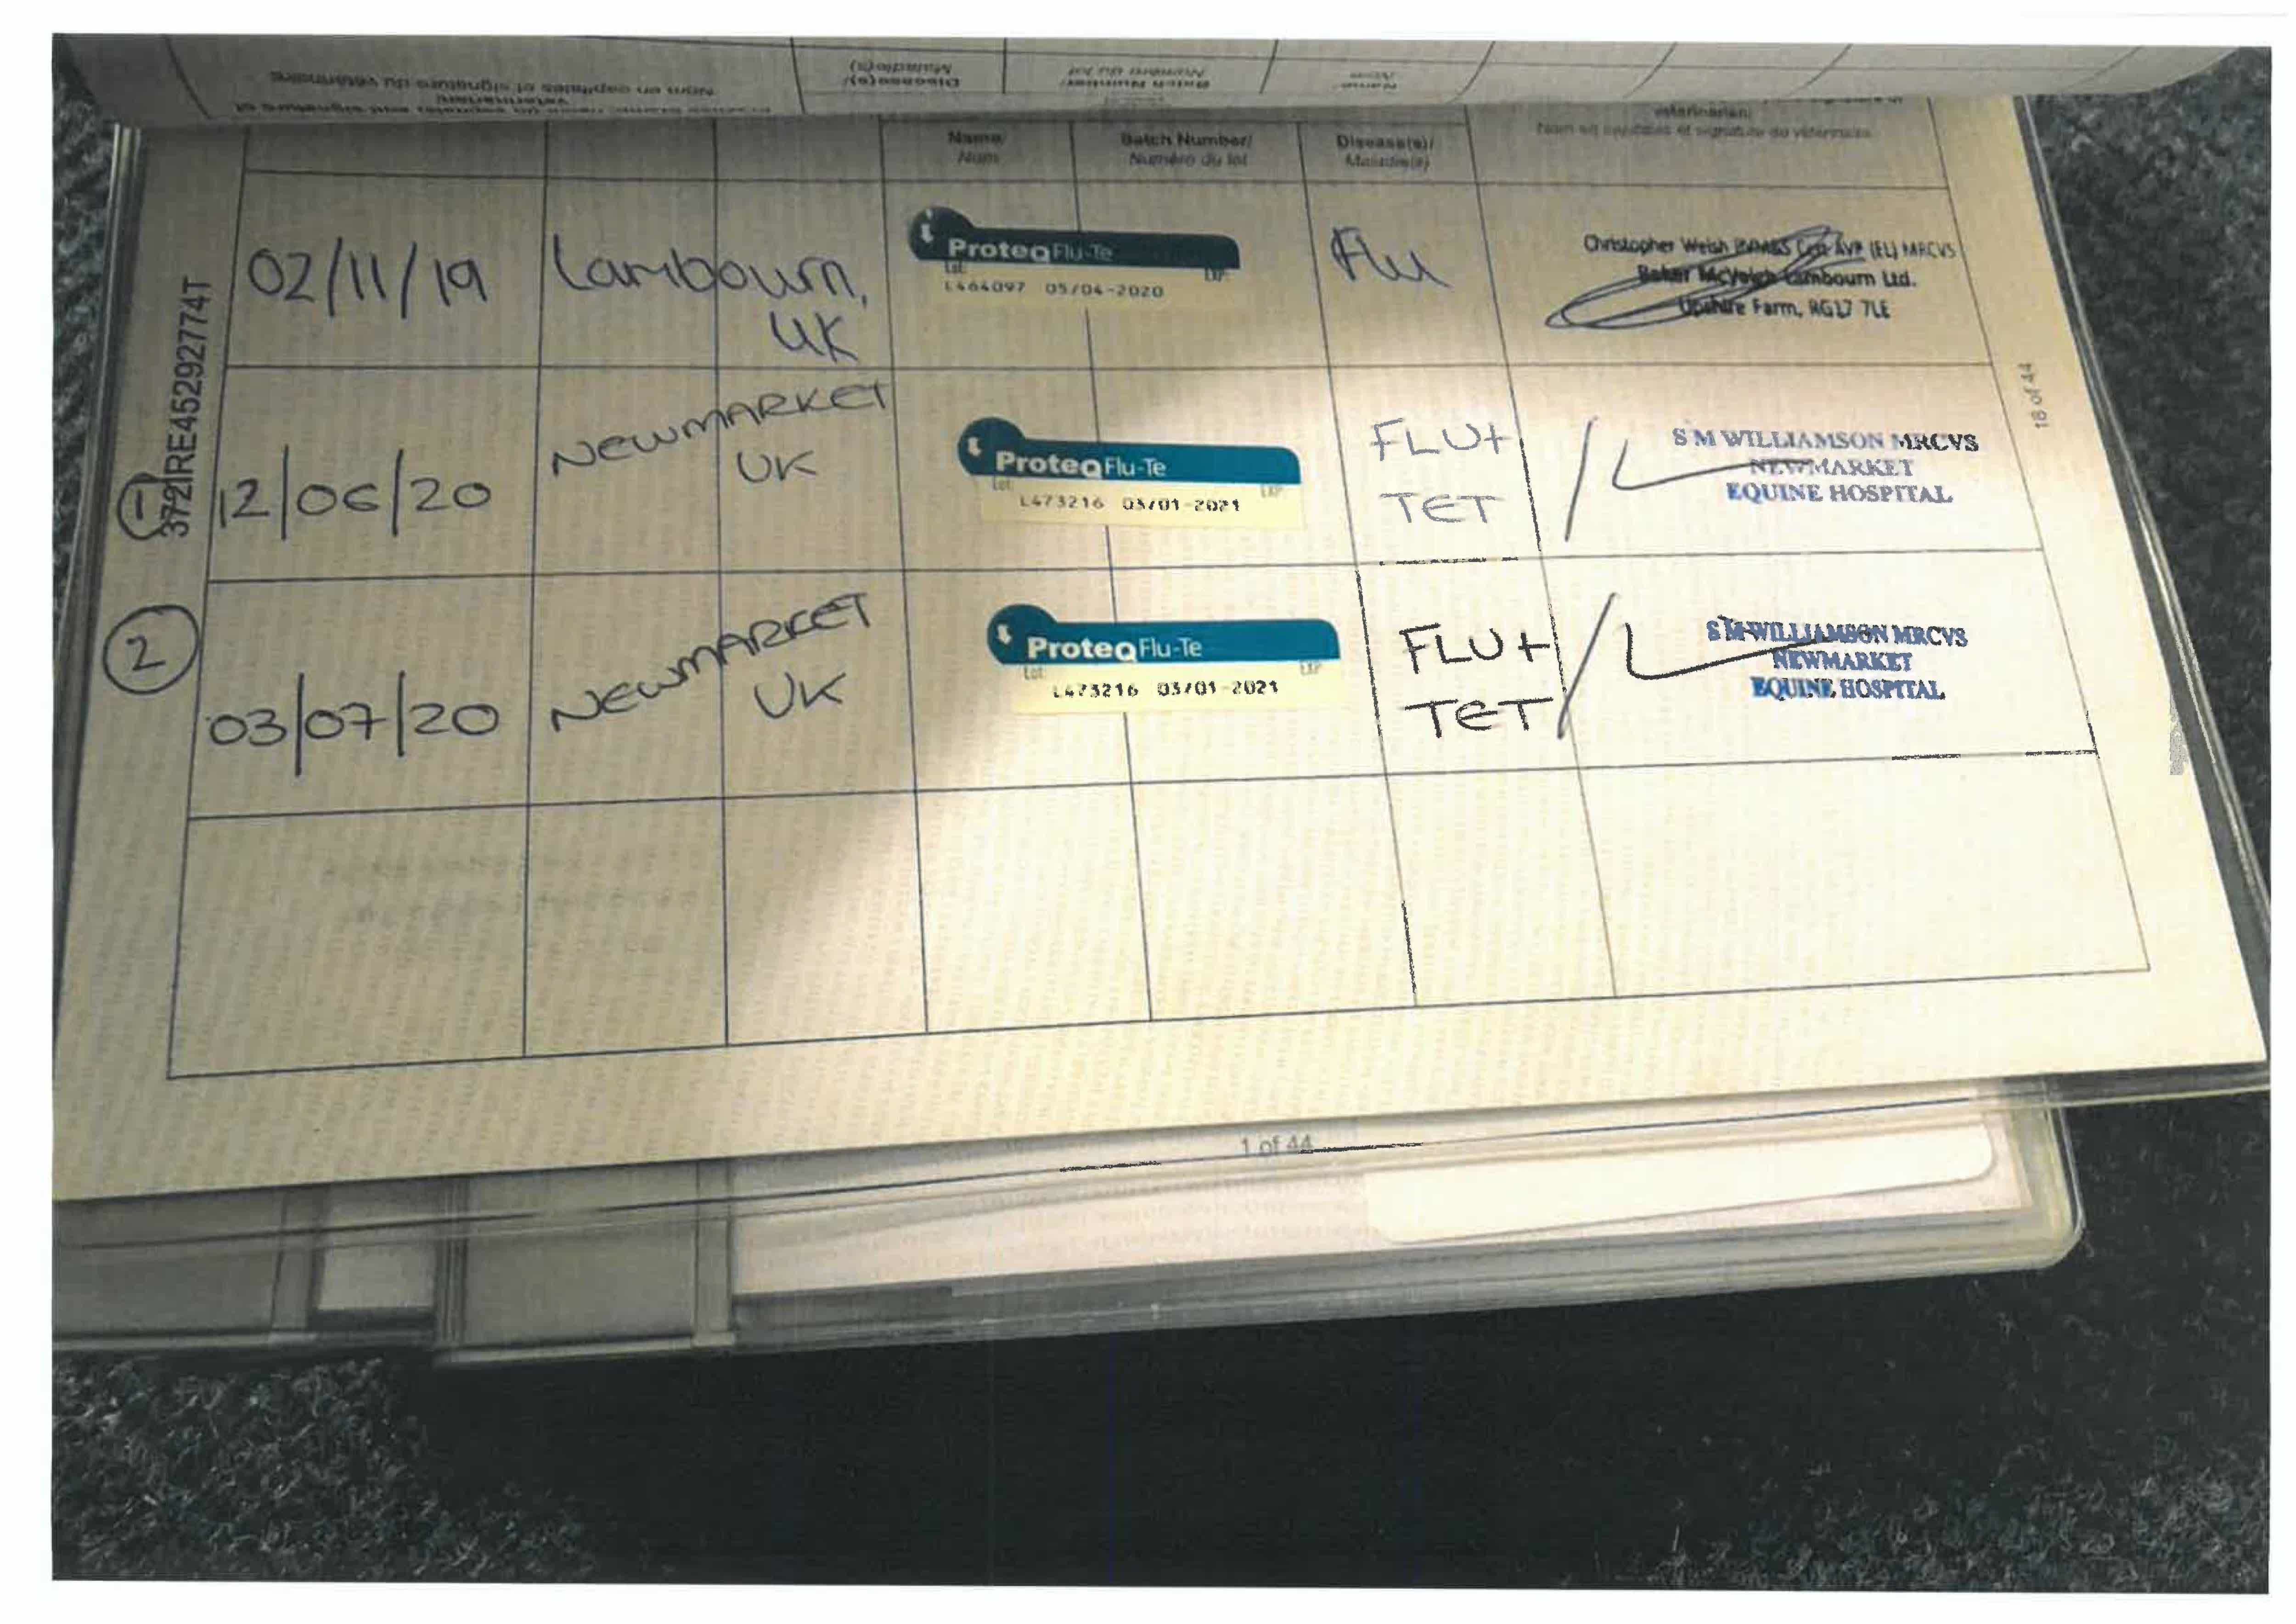 Nom en capitales et signature du vétérinaire
Disease(s)/
Maladie(s)
Batch Number/
Numéro du lot
Name/
veterinarian/
Nom en capitales et signature du vétérinaire
Name/
Nom
Batch Number/
Numéro du lot
Disease(s)/
Maladie(s)
02/11/19
Lambourn,
UK
ProteqFlu-Te
Lot:
EXP:
L464097 05/04-2020
Flu
Christopher Welsh BVM&S Cert AVP (EL) MRCVS
Baker McVeigh Lambourn Ltd.
Upshire Farm, RG17 7LE
372IRE452927774T
18 of 44
1
12/06/20
NEWMARKET
UK
ProteqFlu-Te
Lot:
EXP:
L473216 03/01-2021
FLU+
TET
S M WILLIAMSON MRCVS
NEWMARKET
EQUINE HOSPITAL
2
03/07/20
NEWMARKET
UK
ProteqFlu-Te
Lot:
EXP:
L473216 03/01-2021
FLU+
TET
S M WILLIAMSON MRCVS
NEWMARKET
EQUINE HOSPITAL
1 of 44